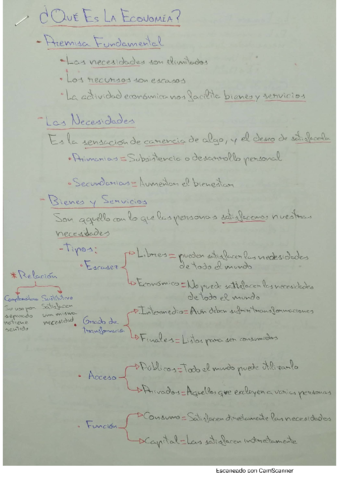 ¿Qué Es La Economía?
- Premisa Fundamental
• Las necesidades son ilimitadas
• Los recursos son escasos
• La actividad económica nos facilita bienes y servicios
- Las Necesidades
Es la sensación de carencia de algo, y el deseo de satisfacerla
• Primarias = Subsistencia o desarrollo personal
• Secundarias = Aumentan el bienestar
- Bienes y Servicios
Son aquello con lo que las personas satisfacemos nuestras
necesidades
- Tipos:
• Escasez
Libres = pueden satisfacer las necesidades
de todo el mundo
Económicos = No puede satisfacer las necesidades
de todo el mundo
* Relación
Complementarios
Se usan por
separado
no tienen
sentido
Sustitutivos
Satisfacen
una misma
necesidad
• Grado de
transformación
Intermedios = Aún deben sufrir transformaciones
Finales = Listos para ser consumidos
• Acceso
Públicos = Todo el mundo puede utilizarla
Privados = Aquellos que excluyen a varias personas
• Función
Consumo = Satisfacen directamente las necesidades
Capital = Las satisfacen indirectamente
Escaneado con CamScanner